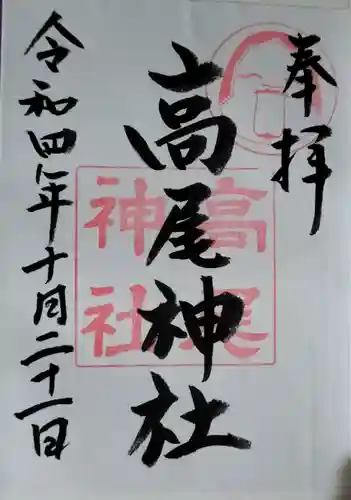 奉拝
高尾神社
高尾神社
令和四年十月二十一日